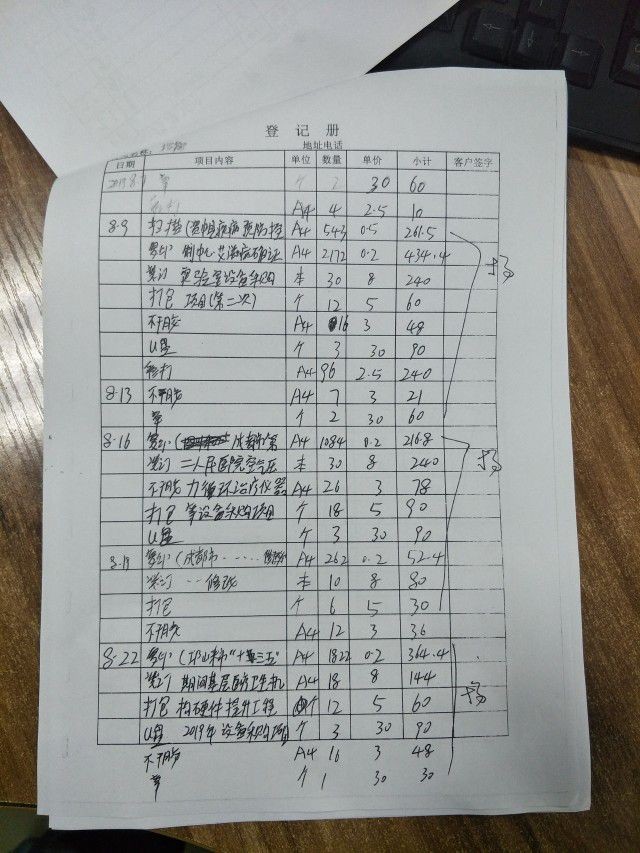 登 记 册
地址电话
日期 项目内容 单位 数量 单价 小计 客户签字
2019.8. 章 个 2 30 60
A4 4 2.5 10
8.9 扫描( 疾病预防控 A4 543 0.5 261.5
复印 制中心艾滋病确证 A4 2172 0.2 434.4
装订 实验室设备采购 本 30 8 240
打包 项目(第二次) 个 12 5 60
不干胶 A4 16 3 48
U盘 个 3 30 90
彩打 A4 96 2.5 240
8.13 不干胶 A4 7 3 21
章 个 2 30 60
8.16 复印( 成都市第 A4 1084 0.2 216.8
装订 二人民医院空气压 本 30 8 240
不干胶 力循环治疗仪器 A4 26 3 78
打包 等设备采购项目 个 18 5 90
U盘 个 3 30 90
8.19 复印(成都市…… A4 262 0.2 52.4
装订 ·· 修改 本 10 8 80
打包 个 6 5 30
不干胶 A4 12 3 36
8.22 复印(邛崃市"十三五" A4 1822 0.2 364.4
装订 期间基层医疗卫生机 A4 18 8 144
打包 构硬件提升工程 个 12 5 60
U盘 2019年设备采购项目 个 3 30 90
不干胶 A4 16 3 48
章 个 1 30 30